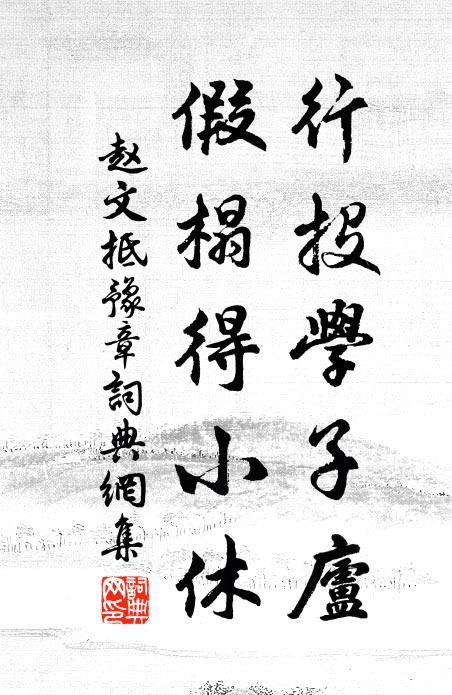 行投學子廬
假榻得小休
赵文抵豫章詞典網集
詞典网印